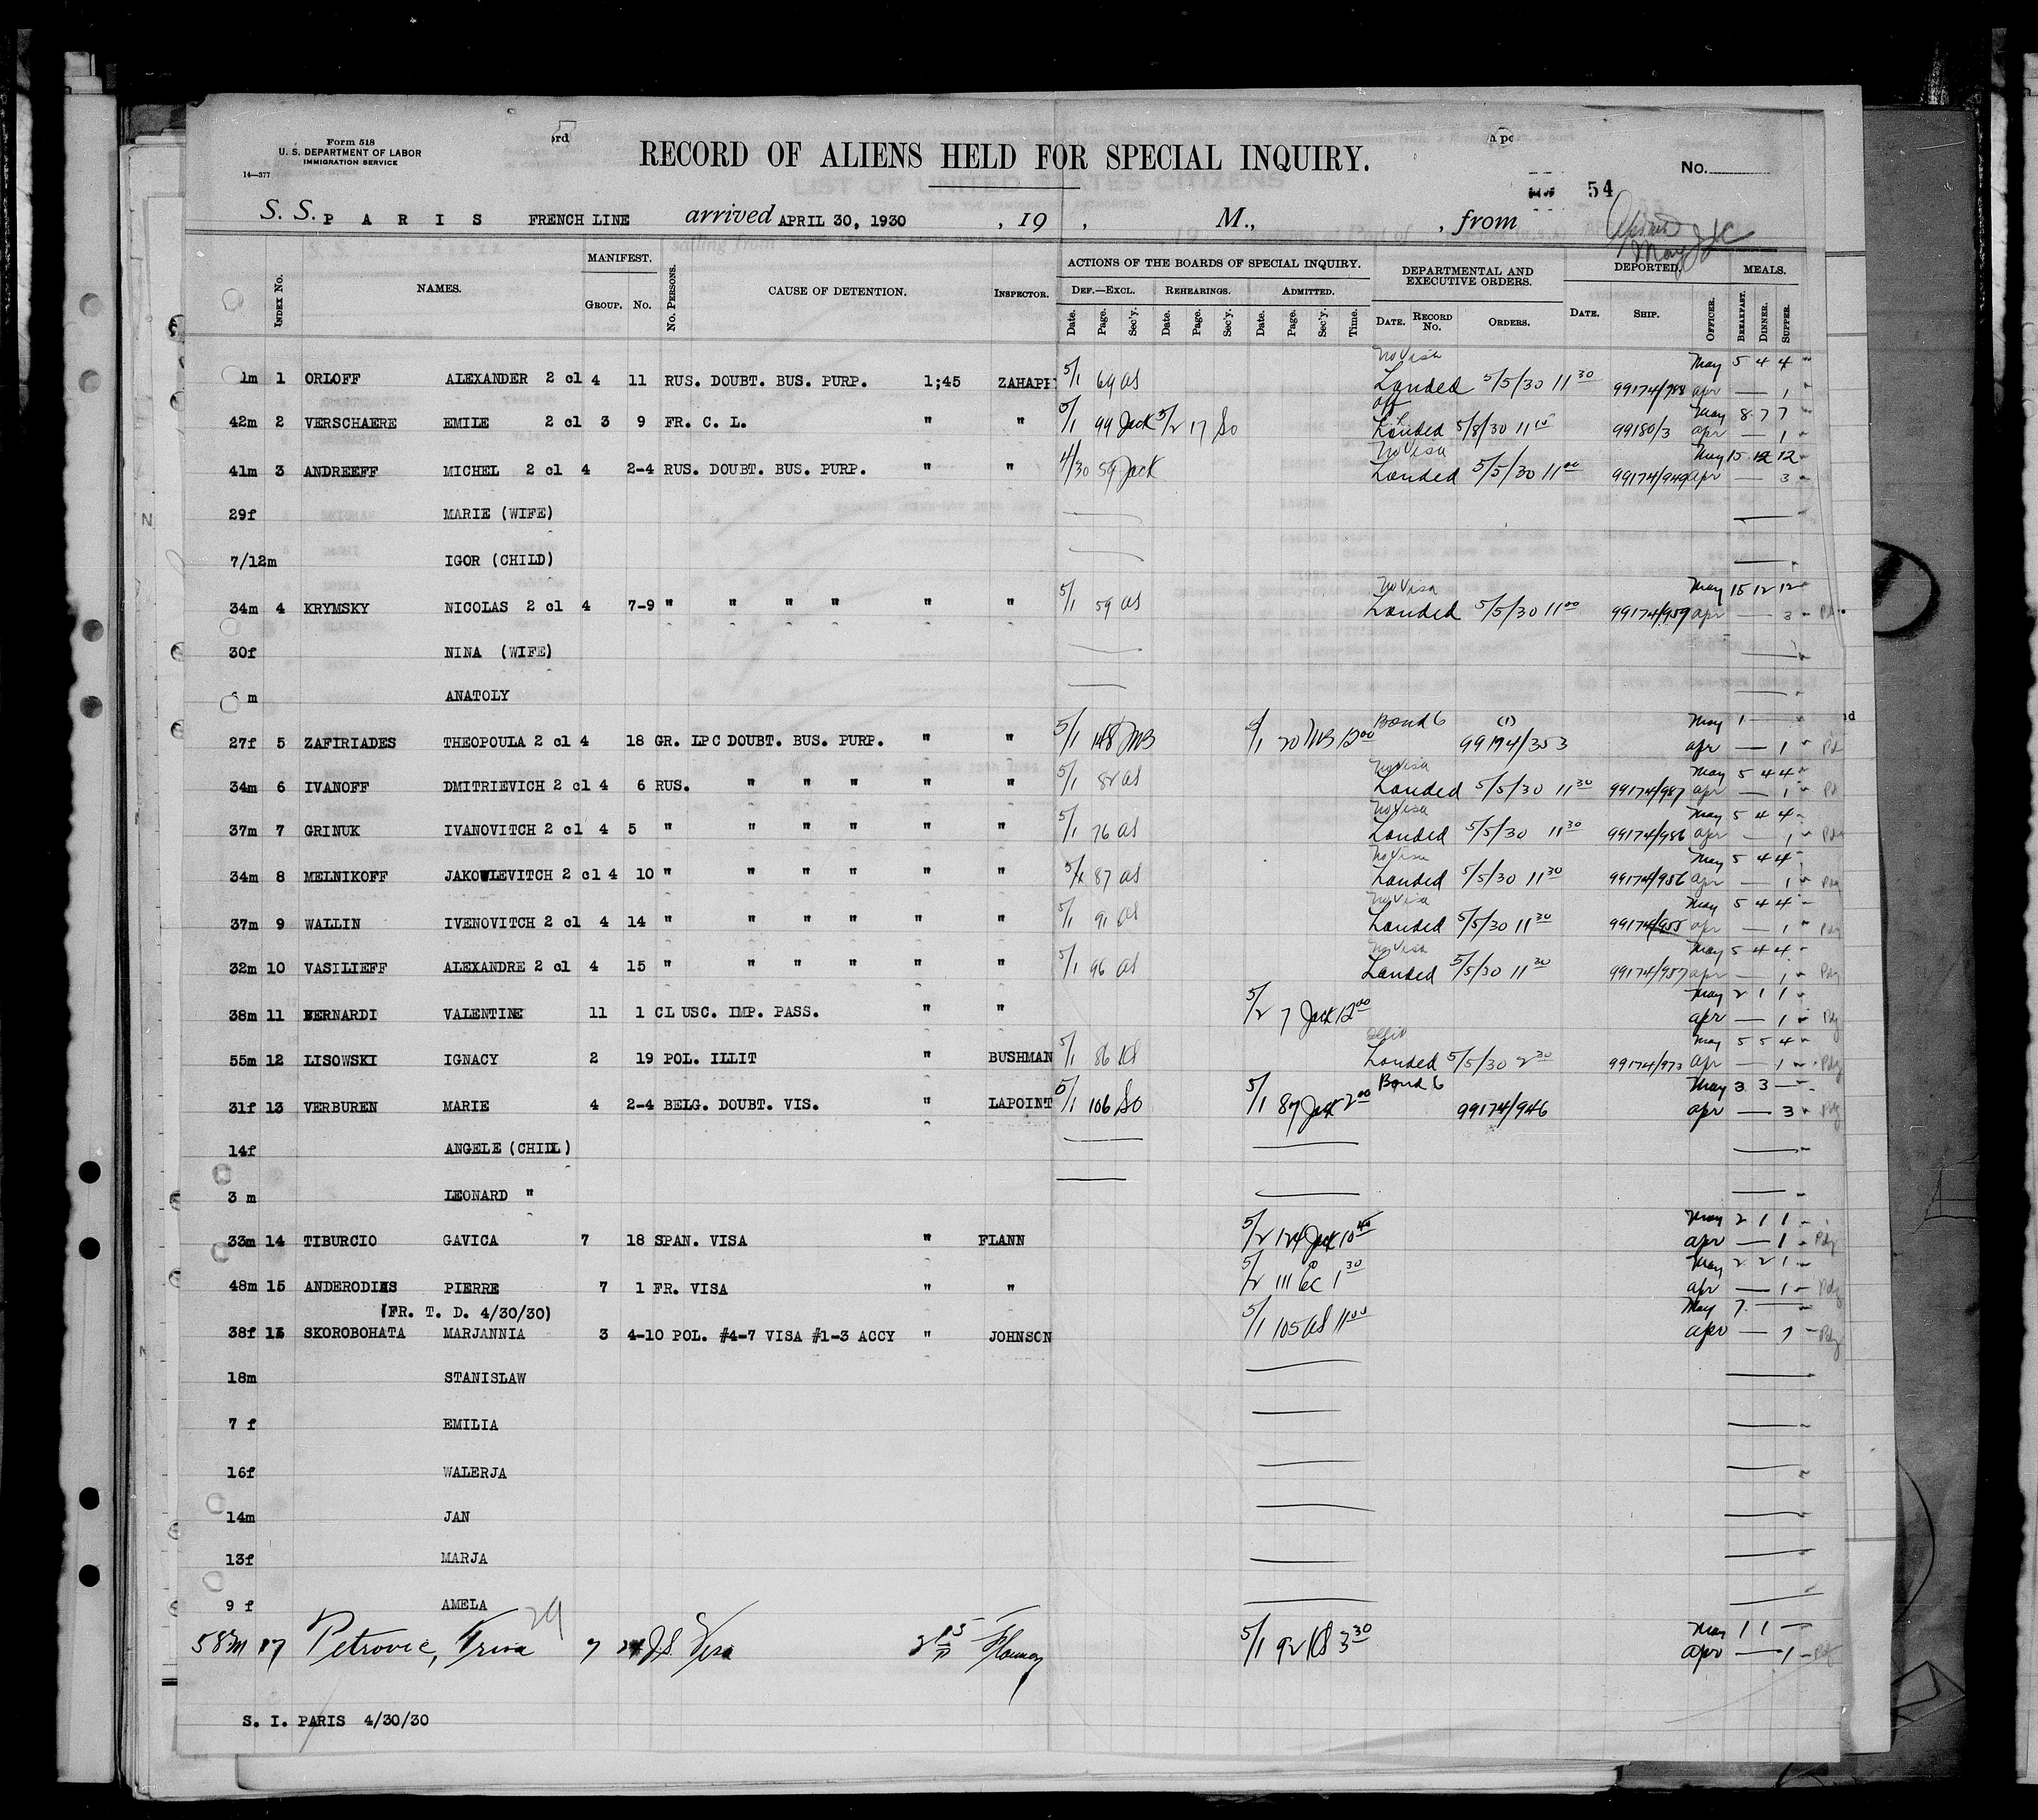 Form 518
U. S. DEPARTMENT OF LABOR
IMMIGRATION SERVICE
14—377
RECORD OF ALIENS HELD FOR SPECIAL INQUIRY.
No.
54
S. S. PARIS FRENCH LINE arrived APRIL 30, 1930 , 19 , M., , from
INDEX No. NAMES. MANIFEST. GROUP. No. No. PERSONS. CAUSE OF DETENTION. INSPECTOR. ACTIONS OF THE BOARDS OF SPECIAL INQUIRY. DEF.—EXCL. Date. Page. Sec'y. REHEARINGS. Date. Page. Sec'y. ADMITTED. Date. Page. Sec'y. Time. DEPARTMENTAL AND EXECUTIVE ORDERS. DATE. RECORD No. ORDERS. DEPORTED. DATE. SHIP. OFFICER. MEALS. BREAKFAST. DINNER. SUPPER.
No Visa May 5 4 4
1m 1 ORLOFF ALEXANDER 2 cl 4 11 RUS. DOUBT. BUS. PURP. 1;45 5/1 69 as Landed 5/5/30 11 30 99174/988 apr — 1
May 8 7 7
42m 2 VERSCHAERE EMILE 2 cl 3 9 FR. C. L. " " 5/1 99 Jack 5/2 17 So Landed 5/8/30 11 99180/3 apr — 1
No Visa May 15 12 12
41m 3 ANDREEFF MICHEL 2 cl 4 2-4 RUS. DOUBT. BUS. PURP. " " 4/30 59 Jack Landed 5/5/30 11 00 99174/949 apr — 3
29f MARIE (WIFE)
7/12m IGOR (CHILD)
No Visa May 15 12 12
34m 4 KRYMSKY NICOLAS 2 cl 4 7-9 " " " " " " 5/1 59 as Landed 5/5/30 11 00 99174/959 apr — 3
30f NINA (WIFE)
m ANATOLY
Bond 6 (1) May 1
27f 5 ZAFIRIADES THEOPOULA 2 cl 4 18 GR. LPC DOUBT. BUS. PURP. " " 5/1 148 MB 99194/353 apr — 1
No Visa May 5 4 4
34m 6 IVANOFF DMITRIEVICH 2 cl 4 6 RUS. " " " " " 5/1 82 as Landed 5/5/30 11 30 99174/987 apr — 1
No Visa May 5 4 4
37m 7 GRINUK IVANOVITCH 2 cl 4 5 " " " " " " 5/1 76 as Landed 5/5/30 11 30 99174/986 apr — 1
No Visa May 5 4 4
34m 8 MELNIKOFF JAKOWLEVITCH 2 cl 4 10 " " " " " " 87 as Landed 5/5/30 11 30 99174/956 apr — 1
No Visa May 5 4 4
37m 9 WALLIN IVENOVITCH 2 cl 4 14 " " " " " " 5/1 91 as Landed 5/5/30 11 30 99174/955 apr — 1
No Visa May 5 4 4
32m 10 VASILIEFF ALEXANDRE 2 cl 4 15 " " " " " " 5/1 96 as Landed 5/5/30 11 30 99174/957 apr — 1
May 2 1 1
38m 11 BERNARDI VALENTINE 11 1 CL USC. IMP. PASS. " " 5/2 7 Jack 12 00 apr — 1
May 5 5 4
55m 12 LISOWSKI IGNACY 2 19 POL. ILLIT " BUSHMAN 5/1 86 KS Landed 5/5/30 2 30 99174/973 apr — 1
Bond 6 May 3 3
31f 13 VERBUREN MARIE 4 2-4 BELG. DOUBT. VIS. " LAPOINT 5/1 106 So 5/1 87 Jack 2 00 99174/946 apr — 3
14f ANGELE (CHILD)
3 m LEONARD "
May 2 1 1
33m 14 TIBURCIO GAVICA 7 18 SPAN. VISA " FLANN 5/2 124 Jack 10 40 apr — 1
May 2 2 1
48m 15 ANDERODIAS PIERRE 7 1 FR. VISA " " 5/2 111 1 30 apr — 1
(FR. T. D. 4/30/30) May 7
38f 16 SKOROBOHATA MARJANNIA 3 4-10 POL. #4-7 VISA #1-3 ACCY " JOHNSON 5/1 105 as 11 00 apr — 7
18m STANISLAW
7 f EMILIA
16f WALERJA
14m JAN
13f MARJA
9 f AMELA
29
May 1 1
58m 17 Petrovic, 7 J.S. Visa 5/1 92 KS 3 30 apr — 1
S. I. PARIS 4/30/30